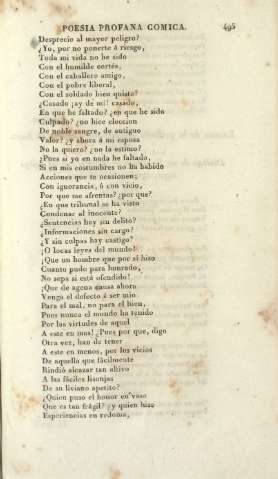 POESIA PROFANA COMICA. 495
Desprecio al mayor peligro?
¿Yo, por no ponerte á riesgo,
Toda mi vida no he sido
Con el humilde cortés,
Con el caballero amigo,
Con el pobre liberal,
Con el soldado bien quisto?
¿Casado ¡ay de mí! casado,
En que he faltado? ¿en que he sido
Culpado? ¿no hice eleccion
De noble sangre, de antiguo
Valor? ¿y ahora á mi esposa
No la quiero? ¿no la estimo?
¿Pues si yo en nada he faltado,
Si en mis costumbres no ha habido
Acciones que te ocasionen;
Con ignorancia, ó con vicio,
Por que me afrentas? ¿por que?
¿En que tribunal se ha visto
Condenar al inocente?
¿Sentencias hay sin delito?
¿Informaciones sin cargo?
¿Y sin culpas hay castigo?
¡O locas leyes del mundo!
¡Que un hombre que por si hizo
Cuanto pudo para honrado,
No sepa si está ofendido!
¡Que de agena causa ahora
Venga el defecto á ser mio
Para el mal, no para el bien,
Pues nunca el mundo ha tenido
Por las virtudes de aquel
A este en mas! ¿Pues por que, digo
Otra vez, han de tener
A este en menos, por los vicios
De aquella que fácilmente
Rindió alcazar tan altivo
A las fáciles lisonjas
De su liviano apetito?
¿Quien puso el honor en vaso
Que es tan frágil? ¿y quien hizo
Experiencias en redoma,